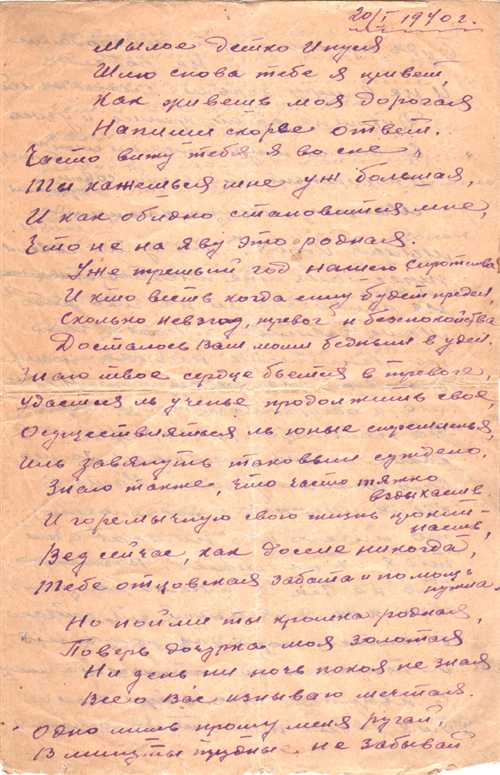 20/I 1940 г.
Мылое детко Инуся
Шлю снова тебе я привет,
Как живешь моя дорогая
Напиши скорее ответ.
Часто вижу тебя я во сне,
Ты кажешься мне уж большая,
И как обидно становится мне,
Что не на яву это родная.
Уже третий год нашего сиротства
И кто весть когда ему будет предел
Сколько невзгод, тревог и безпокойства
Досталось Вам моим бедным в удел.
Знаю твое сердце бьется в тревоге,
Удастся ль ученье продолжить свое,
Осуществляться ль юные стремленья
Иль завянуть таковым суждено.
Знаю также, что часто тяжко
вздыхаешь
И горемычную свою жизнь
Вед сейчас, как доселе никогда,
Тебе отцовская забота и помощь
нужна
Но пойми ты крошка родная,
Поверь дочурка моя золотая
Ни день ни ночь покоя не зная
Все о Вас изнываю мечтая.
Одно лишь прошу меня ругай,
В минуты трудные не забывай